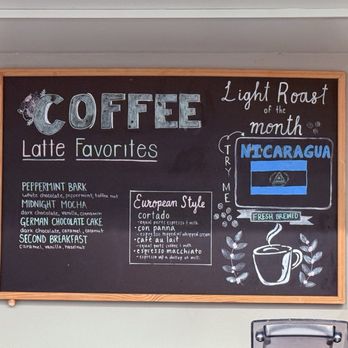 COFFEE
Latte Favorites
PEPPERMINT BARK
white chocolate, peppermint, toffee nut
MIDNIGHT MOCHA
dark chocolate, vanilla, cinnamon
GERMAN CHOCOLATE CAKE
dark chocolate, caramel, coconut
SECOND BREAKFAST
caramel, vanilla, hazelnut
European Style
cortado
- equal parts espresso & milk
con panna
- espresso topped w/ whipped cream
café au lait
- equal parts coffee & milk
espresso macchiato
- espresso w/ a dollop of milk
Light Roast
of the
month
TRY ME
NICARAGUA
FRESH BREWED